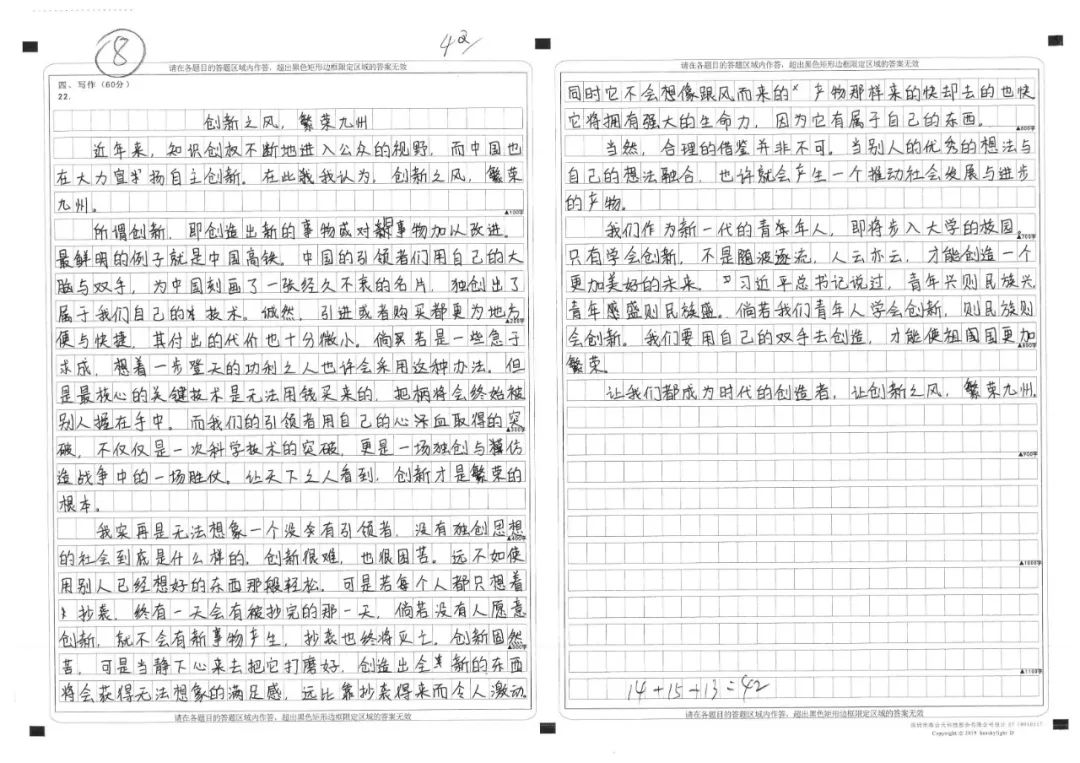 ⑧
42/
请在各题目的答题区域内作答，超出黑色矩形边框限定区域的答案无效
四、写作（60分）
22.
创新之风，繁荣九州
近年来，知识创权不断地进入公众的视野，而中国也
在大力宣扬自主创新。在此我认为，创新之风，繁荣
九州。
▲100字
所谓创新，即创造出新的事物或对事物加以改进。
最鲜明的例子就是中国高铁。中国的引领者们用自己的大
脑与双手，为中国刻画了一张经久不衰的名片，独创出了
属于我们自己的技术。诚然，引进或者购买都更为地方
▲200字
便与快捷，其付出的代价也十分微小。倘若是一些急于
求成，想着一步登天的功利之人也许会采用这种办法。但
是最核心的关键技术是无法用钱买来的，把柄将会终始被
别人握在手中。而我们的引领者用自己的心血取得的突
▲300字
破，不仅仅是一次科学技术的突破，更是一场独创与仿
造战争中的一场胜仗。让天下之人看到，创新才是繁荣的
根本。
我实再是无法想象一个没有引领者，没有独创思想
▲400字
的社会到底是什么样的，创新很难，也很困苦。远不如使
用别人已经想好的东西那般轻松，可是若每个人都只想着
抄袭，终有一天会有被抄完的那一天，倘若没有人愿意
创新，就不会有新事物产生，抄袭也终将灭亡。创新固然
▲500字
苦，可是当静下心来去把它打磨好，创造出全新的东西
将会获得无法想象的满足感，远比靠抄袭得来而令人激动
请在各题目的答题区域内作答，超出黑色矩形边框限定区域的答案无效
请在各题目的答题区域内作答，超出黑色矩形边框限定区域的答案无效
同时它不会想像跟风而来的产物那样来的快却去的也快
它将拥有强大的生命力，因为它有属于自己的东西。
▲600字
当然，合理的借鉴并非不可。当别人的优秀的想法与
自己的想法融合，也许就会产生一个推动社会发展与进步
的产物。
我们作为新一代的青年年人，即将步入大学的校园。
▲700字
只有学会创新，不是随波逐流，人云亦云，才能创造一个
更加美好的未来。习近平总书记说过，青年兴则民族兴
青年盛则民族盛。倘若我们青年人学会创新，则民族则
会创新。我们要用自己的双手去创造，才能使祖国更加
▲800字
繁荣。
让我们都成为时代的创造者，让创新之风，繁荣九州。
▲900字
▲1000字
▲1100字
14+15+13=42
请在各题目的答题区域内作答，超出黑色矩形边框限定区域的答案无效